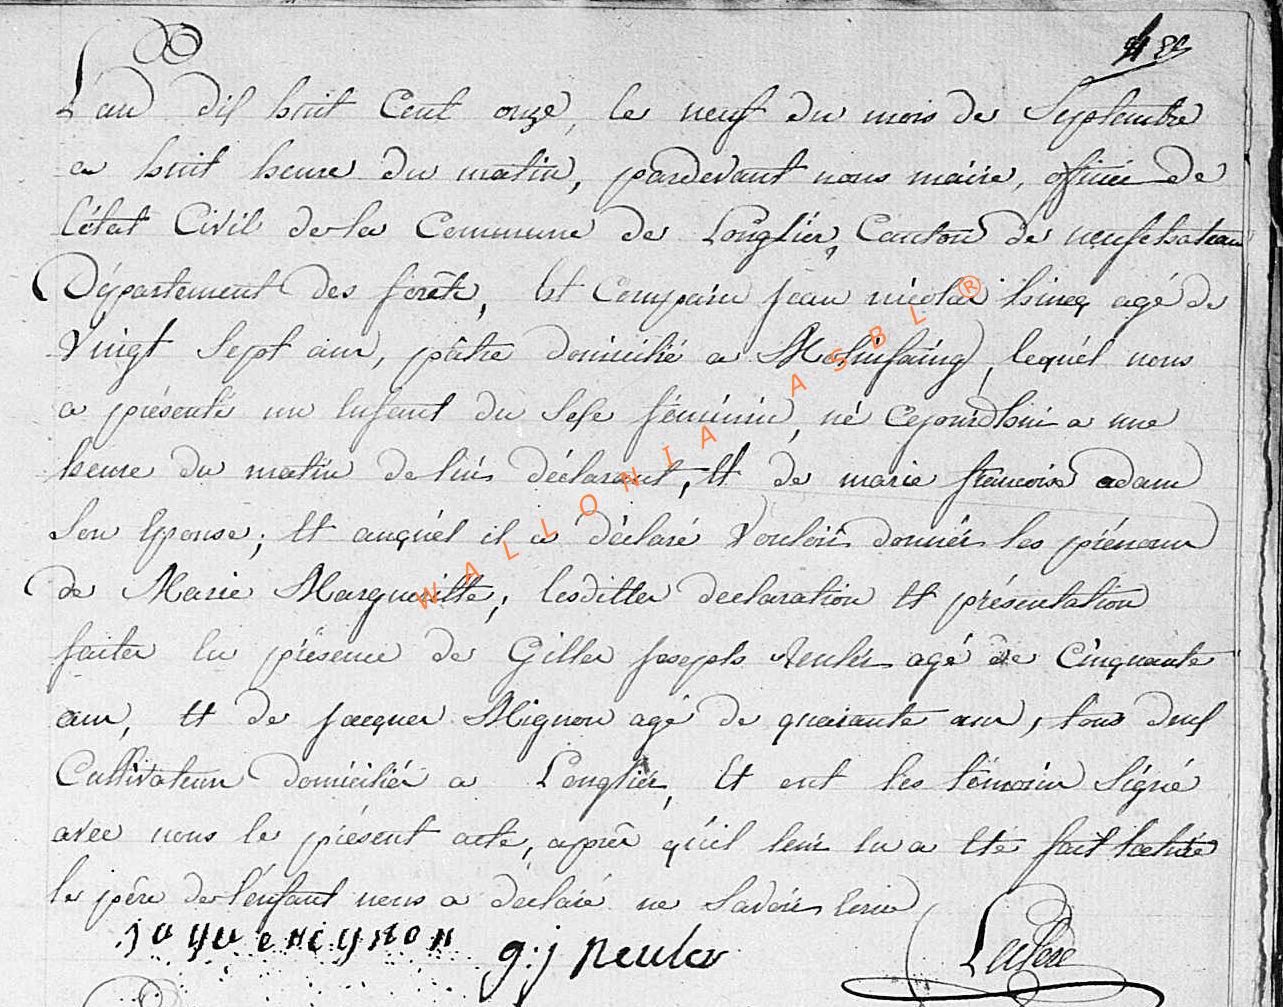 L'an dix huit Cent onze, le neuf du mois de Septembre
a huit heure du matin, pardevant nous maire, officier de
l'état Civil de la Commune de Longlier, Canton de neufchateau
Département des forêts, Est Comparu jean nicolas hincq agé de
Vingt Sept ans, pâtre domicilié a Molinfaing, lequél nous
a présenté un Enfant du Sexe féminin, né Cejourd'hui a une
heure du matin de lui déclarant, Et de marie francoise adam
Son Epouse; Et auquél il a déclaré Vouloir donnér les prénoms
de Marie Margueritte, lesdittes declaration Et présentation
faites En présence de Gilles joseph Reulér agé de Cinquante
ans, Et de jacques Mignon agé de quarante ans, tous deux
Cultivateurs domiciliés a Longliér, Et ont les témoins Signé
avec nous le présent acte, aprés qu'il leur En a Eté fait lecture
le père de l'énfant nous a déclaré ne Savoir Ecrire
jaque mignon g:j reuler
WALLONIA ASBL ®